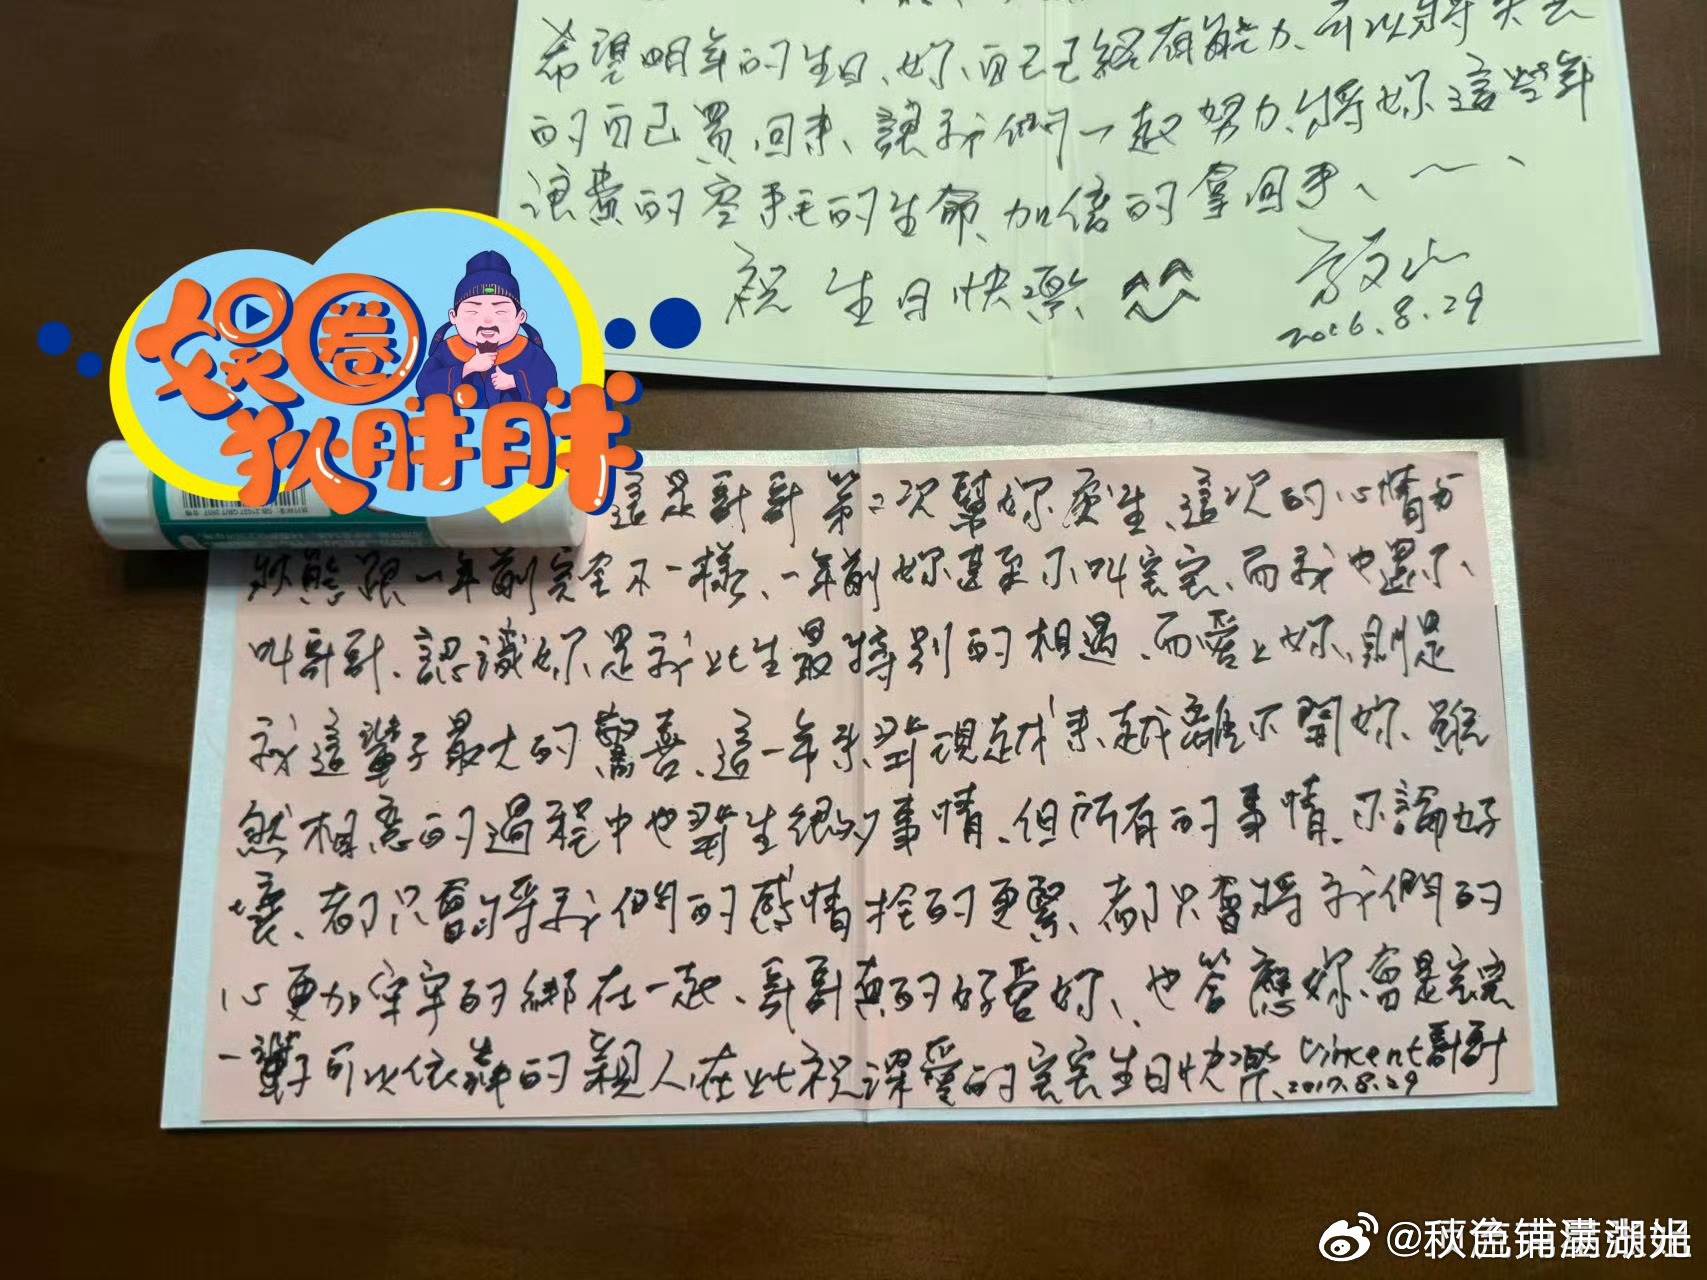 希望明年的生日、妳、自己已經有能力、可以將失去
的自己買回來、讓我們一起努力、將妳這些年
浪費的空耗的生命、加倍的拿回來、~、
祝 生日快樂 ^^
2016.8.29
娱圈
狄胖胖
這是哥哥第二次幫妳慶生、這次的心情與
狀態跟一年前完全不一樣、一年前妳甚至不叫宝宝、而我也還不
叫哥哥、認識妳是我此生最特別的相遇、而愛上妳、則是
我這輩子最大的驚喜、這一年來發現越來越離不開妳、雖
然相戀的過程中也發生很多事情、但所有的事情、不論好
壞、都只會將我們的感情拴的更緊、都只會將我們的
心更加牢牢的綁在一起、哥哥真的好愛妳、也答應妳會是宝宝
一輩子可以依靠的親人在此祝深愛的宝宝生日快樂、Vincent哥哥
2017.8.29